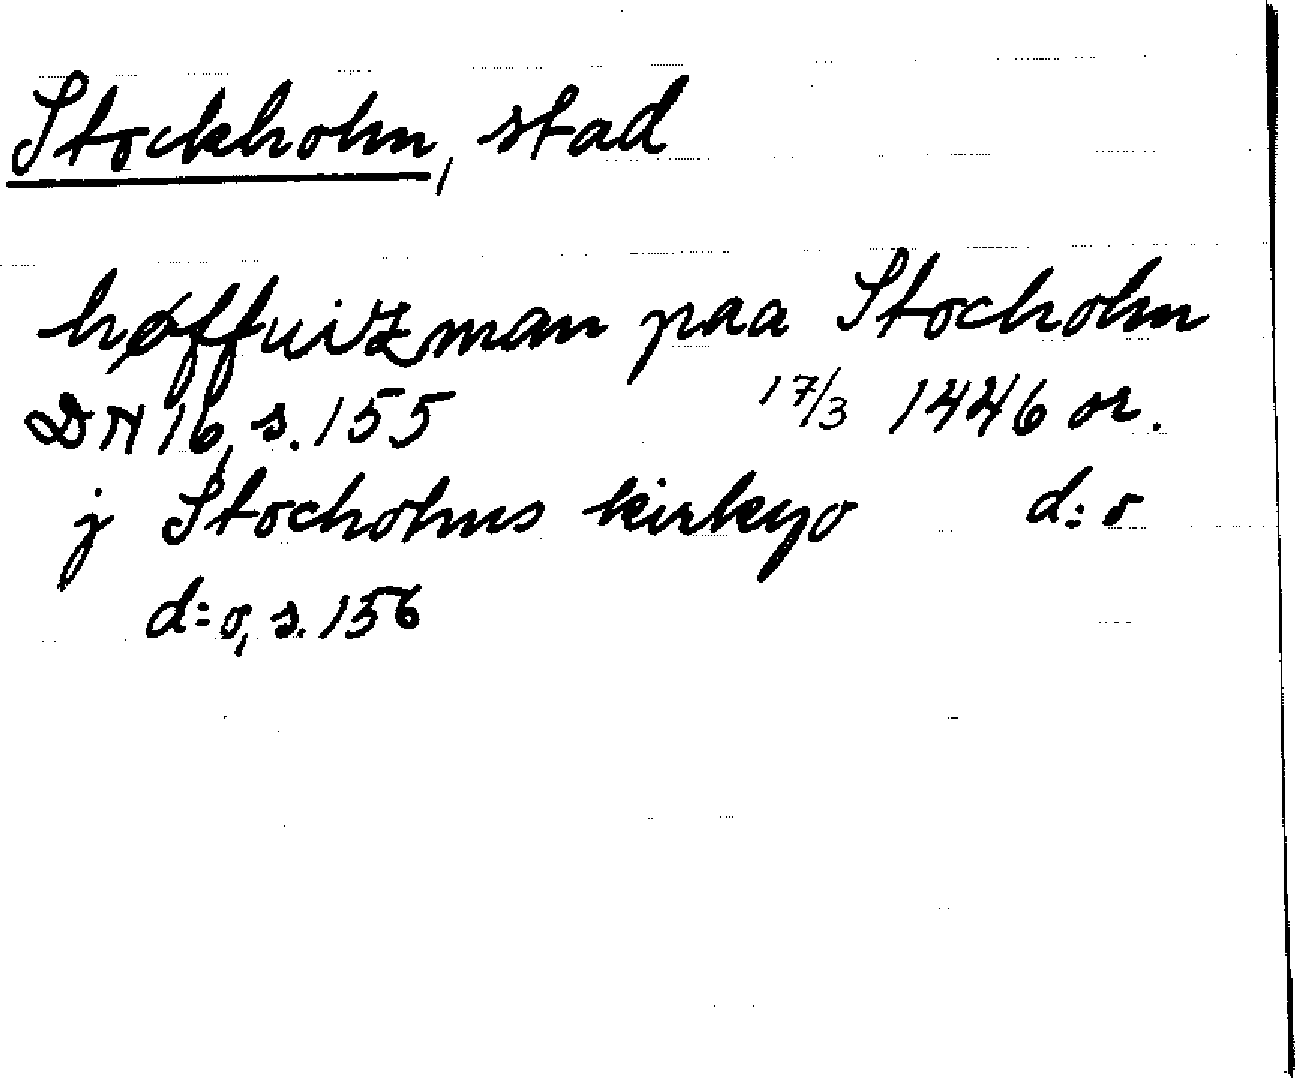 Stockholm, stad
høffuitzman paa Stocholm
DN 16, s. 155 17/3 1446 or.
j Stocholms kirkyo d:o
d:o, s. 156